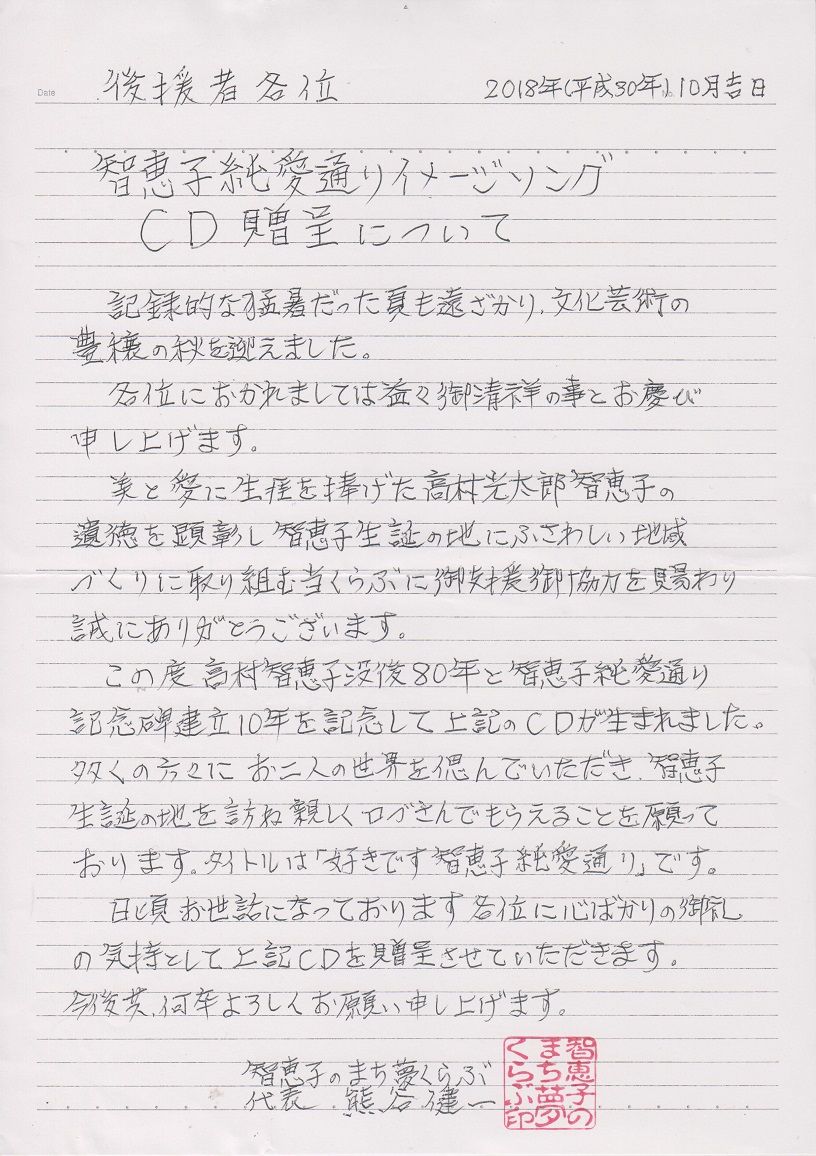 Date
後援者各位
2018年(平成30年)10月吉日
No.
智恵子純愛通りイメージソング
CD贈呈について
記録的な猛暑だった夏も遠ざかり、文化芸術の
豊穣の秋を迎えました。
各位におかれましては益々御清祥の事とお慶び
申し上げます。
美と愛に生涯を捧げた高村光太郎智恵子の
遺徳を顕彰し智恵子生誕の地にふさわしい地域
づくりに取り組む当くらぶに御支援御協力を賜わり
誠にありがとうございます。
この度高村智恵子没後80年と智恵子純愛通り
記念碑建立10年を記念して上記のCDが生まれました。
多くの方々にお二人の世界を偲んでいただき、智恵子
生誕の地を訪ね親しく口ずさんでもらえることを願って
おります。タイトルは「好きです智恵子純愛通り」です。
日頃お世話になっております各位に心ばかりの御礼
の気持として上記CDを贈呈させていただきます。
今後共、何卒よろしくお願い申し上げます。
智恵子のまち夢くらぶ
代表 熊谷健一
智恵子の
まち夢
くらぶ印